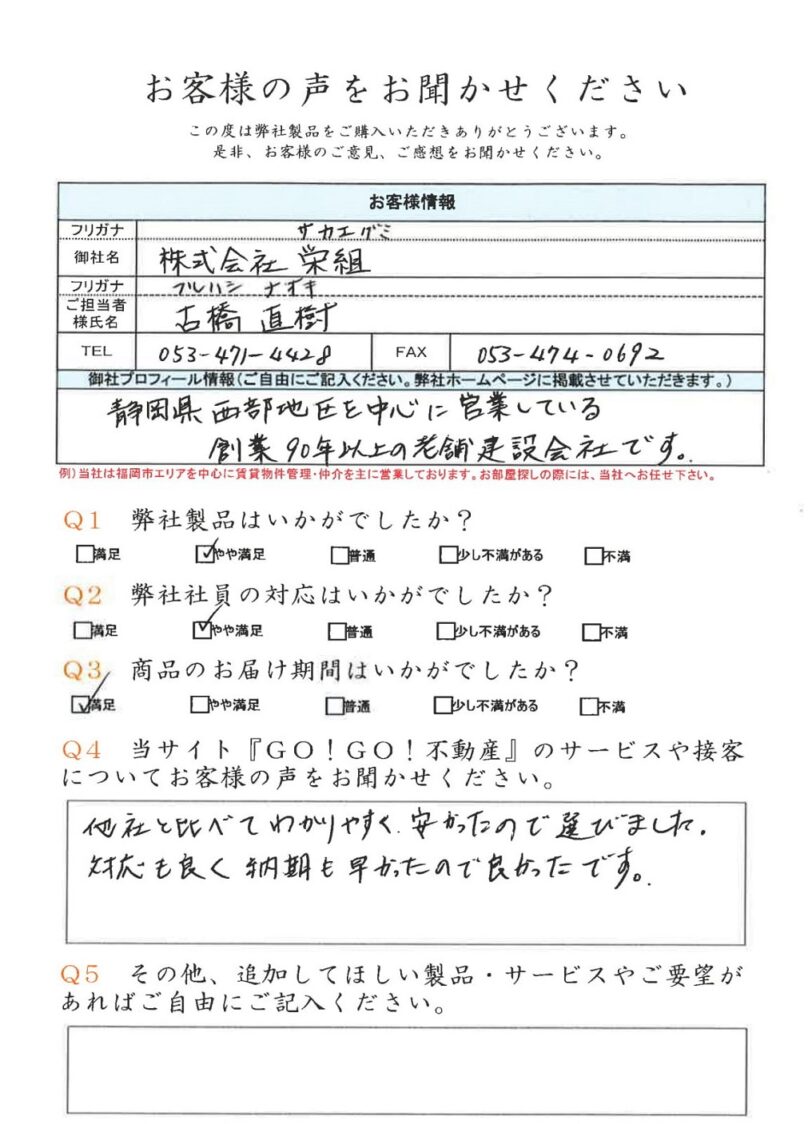 お客様の声をお聞かせください
この度は弊社製品をご購入いただきありがとうございます。
是非、お客様のご意見、ご感想をお聞かせください。
お客様情報
フリガナ サカエグミ
御社名 株式会社 栄組
フリガナ フルハシ ナオキ
ご担当者
様氏名 古橋 直樹
TEL 053-471-4428 FAX 053-474-0692
御社プロフィール情報(ご自由にご記入ください。弊社ホームページに掲載させていただきます。)
静岡県西部地区を中心に営業している
創業90年以上の老舗建設会社です。
例)当社は福岡市エリアを中心に賃貸物件管理・仲介を主に営業しております。お部屋探しの際には、当社へお任せ下さい。
Q1 弊社製品はいかがでしたか?
満足 やや満足 普通 少し不満がある 不満
Q2 弊社社員の対応はいかがでしたか?
満足 やや満足 普通 少し不満がある 不満
Q3 商品のお届け期間はいかがでしたか?
満足 やや満足 普通 少し不満がある 不満
Q4 当サイト『GO!GO!不動産』のサービスや接客
についてお客様の声をお聞かせください。
他社と比べてわかりやすく、安かったので選びました。
対応も良く納期も早かったので良かったです。
Q5 その他、追加してほしい製品・サービスやご要望が
あればご自由にご記入ください。